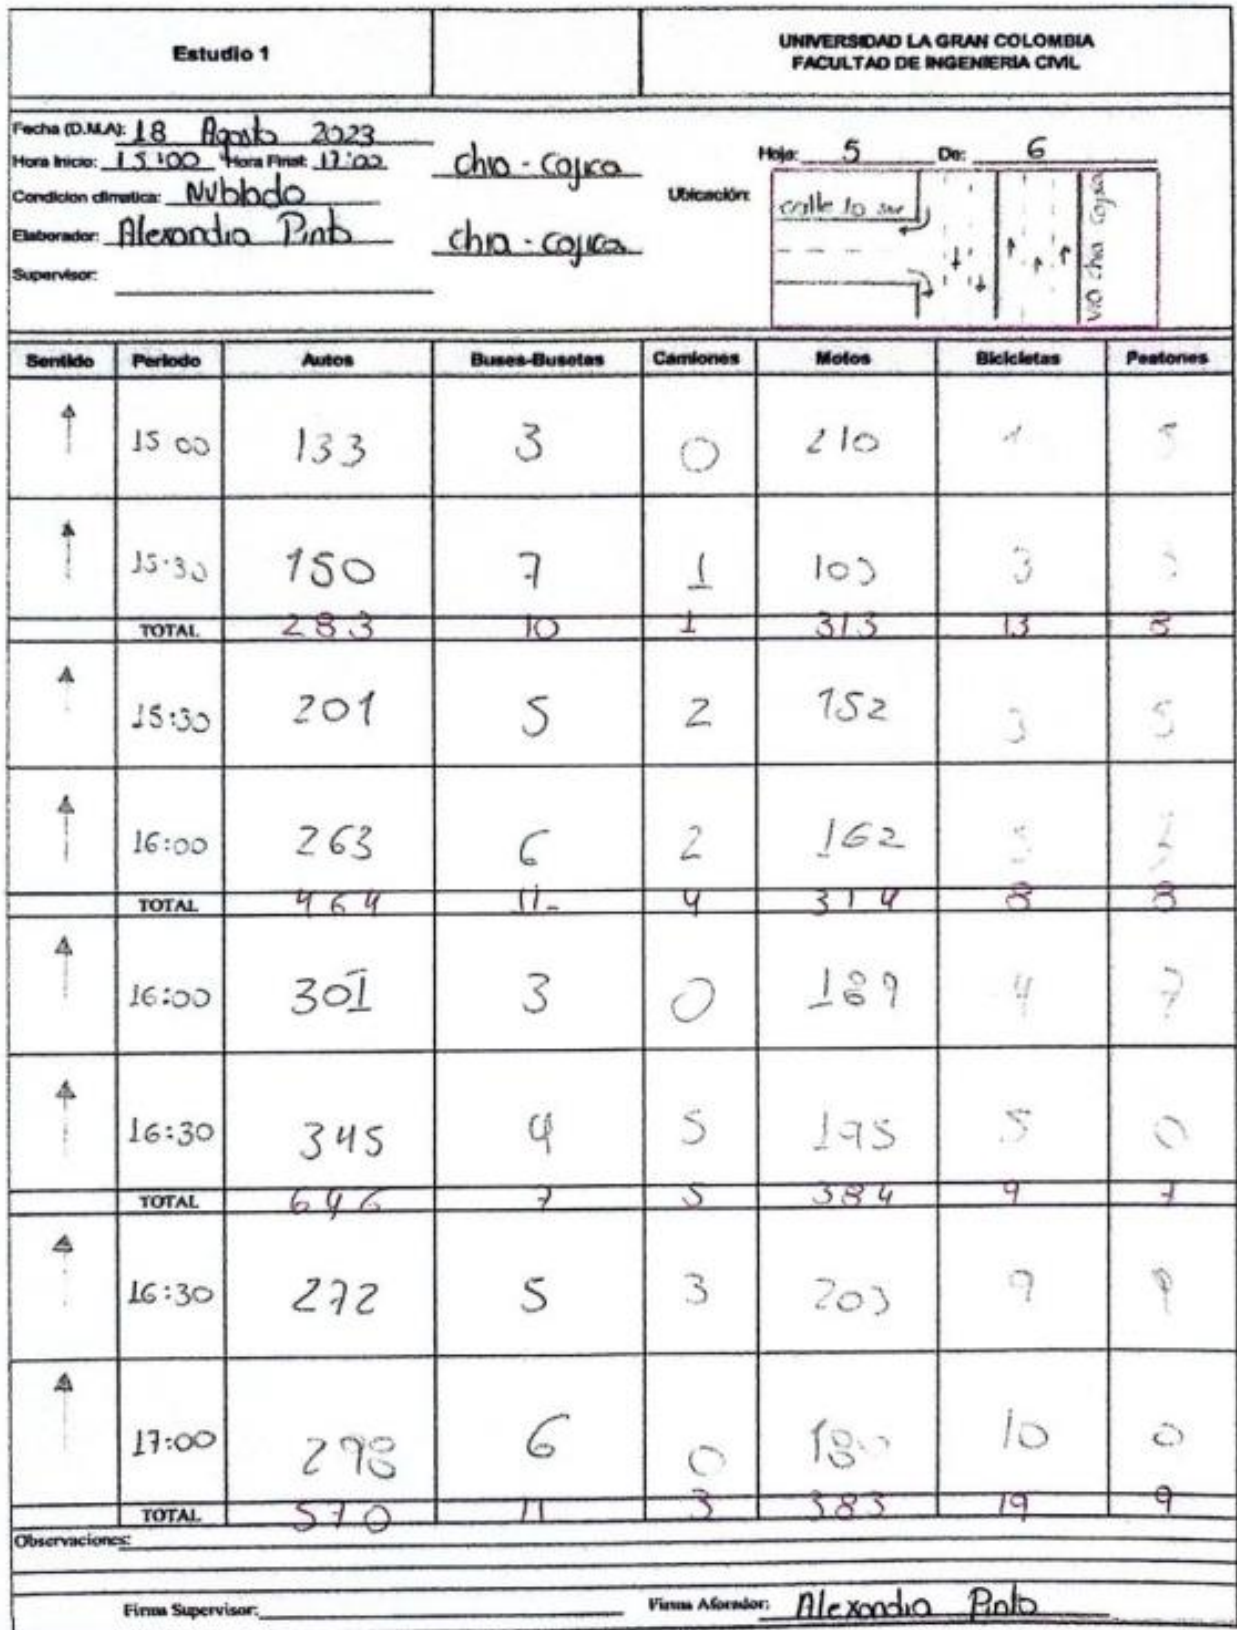 Estudio 1
UNIVERSIDAD LA GRAN COLOMBIA
FACULTAD DE INGENIERIA CIVIL
Fecha (D.M.A): 18 Agosto 2023
Hora Inicio: 15:00 Hora Final: 17:00
chia - Cajica
Hoja: 5 De: 6
Condicion climatica: Nublado
Ubicación:
calle 10 sur
via chia Cajica
Elaborador: Alexandra Pinto
chia - cajica
Supervisor:
Sentido Periodo Autos Buses-Busetas Camiones Motos Bicicletas Peatones
15 00 133 3 0 210 5
15:30 150 7 1 103 3
TOTAL 283 10 1 313 13 8
15:30 201 5 2 152 3 5
16:00 263 6 2 162 5
TOTAL 464 11 4 314 8 8
16:00 301 3 0 189 4 7
16:30 345 4 5 195 5 0
TOTAL 646 7 5 384 9 7
16:30 272 5 3 203 9 9
17:00 298 6 0 180 10 0
TOTAL 570 11 3 383 19 9
Observaciones:
Firma Supervisor:
Firma Aforador: Alexandra Pinto